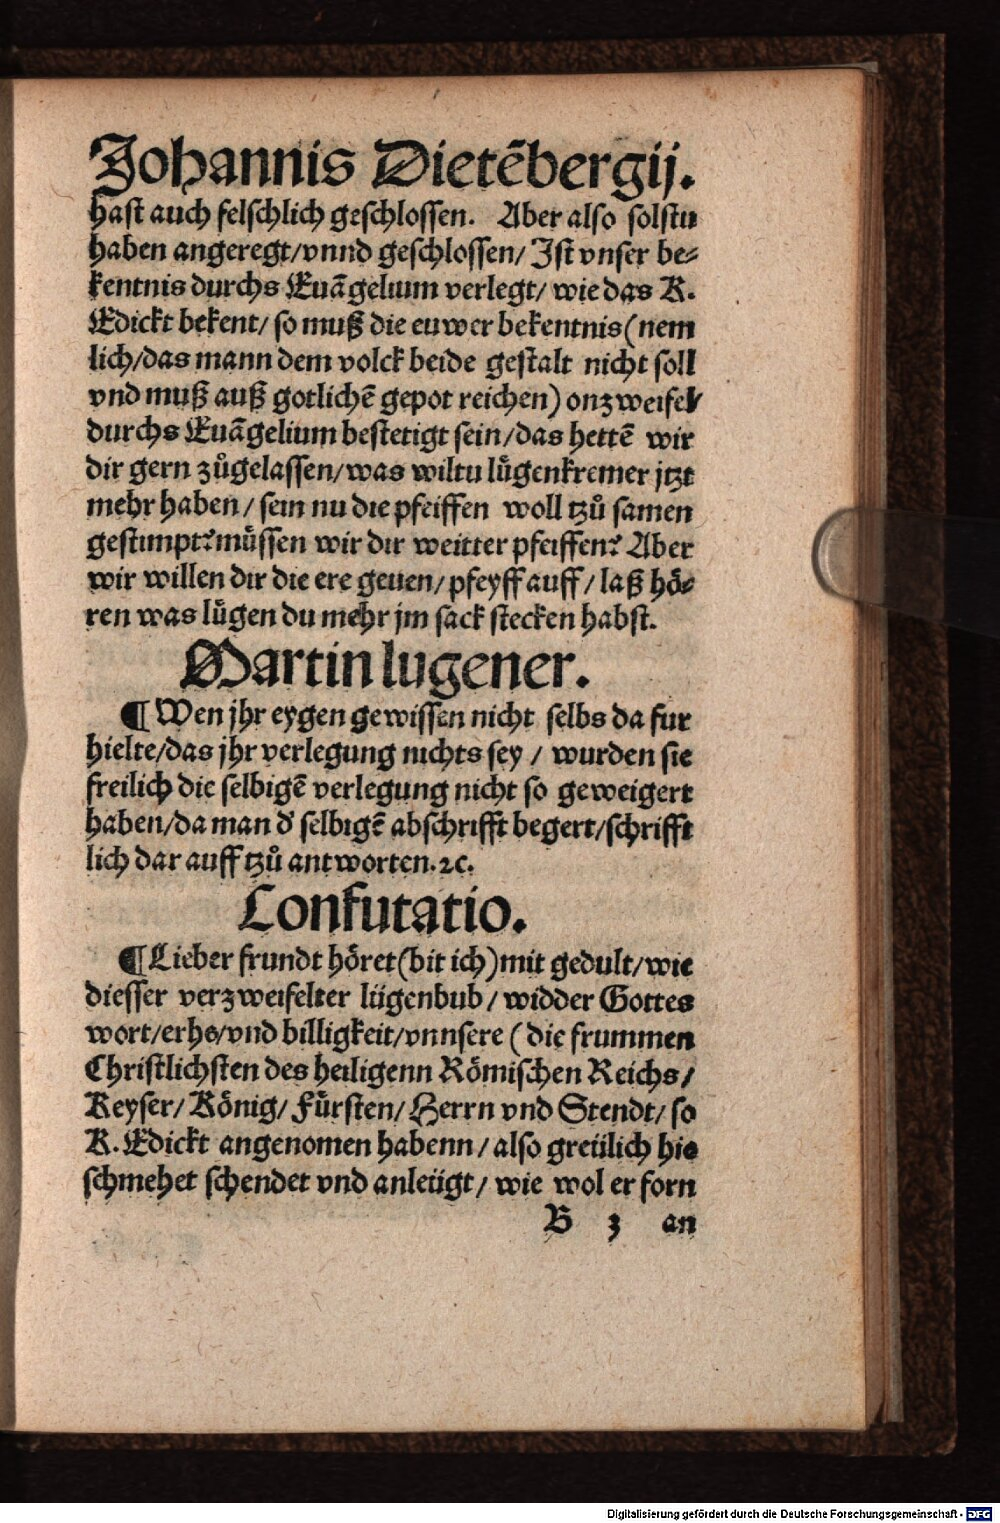 Johannis Dietẽbergij.
hast auch felschlich geschlossen. Aber also solstu
haben angeregt/vnnd geschlossen/ Jst vnser be⸗
kentnis durchs Euãgelium verlegt/ wie das K.
Edickt bekent/ so muß die euwer bekentnis (nem
lich/das mann dem volck beide gestalt nicht soll
vnd muß auß gotlichẽ gepot reichen) onzweifel
durchs Euãgelium bestetigt sein/das hettẽ wir
dir gern zůgelassen/was wiltu lůgenkremer jtzt
mehr haben/ sein nu die pfeiffen woll tzů samen
gestimpt? můssen wir dir weitter pfeiffen? Aber
wir willen dir die ere geuen/ pfeyff auff/ laß hö⸗
ren was lůgen du mehr jm sack stecken habst.
Martin lugener.
¶ Wen jhr eygen gewissen nicht selbs da fur
hielte/das jhr verlegung nichts sey / wurden sie
freilich die selbigẽ verlegung nicht so geweigert
haben/da man d' selbigẽ abschrifft begert/schrifft
lich dar auff tzů antworten.ꝛc.
Confutatio.
¶ Lieber frundt höret (bit ich) mit gedult/wie
diesser verzweifelter lügenbub/ widder Gottes
wort/erhe/vnd billigkeit/vnnsere (die frummen
Christlichsten des heiligenn Römischen Reichs/
Keyser/ König/ Fürsten/ Herrn vnd Stendt/ so
K. Edickt angenomen habenn/ also greülich hie
schmehet schendet vnd anleügt/ wie wol er forn
B 3 an
Digitalisierung gefördert durch die Deutsche Forschungsgemeinschaft - DFG